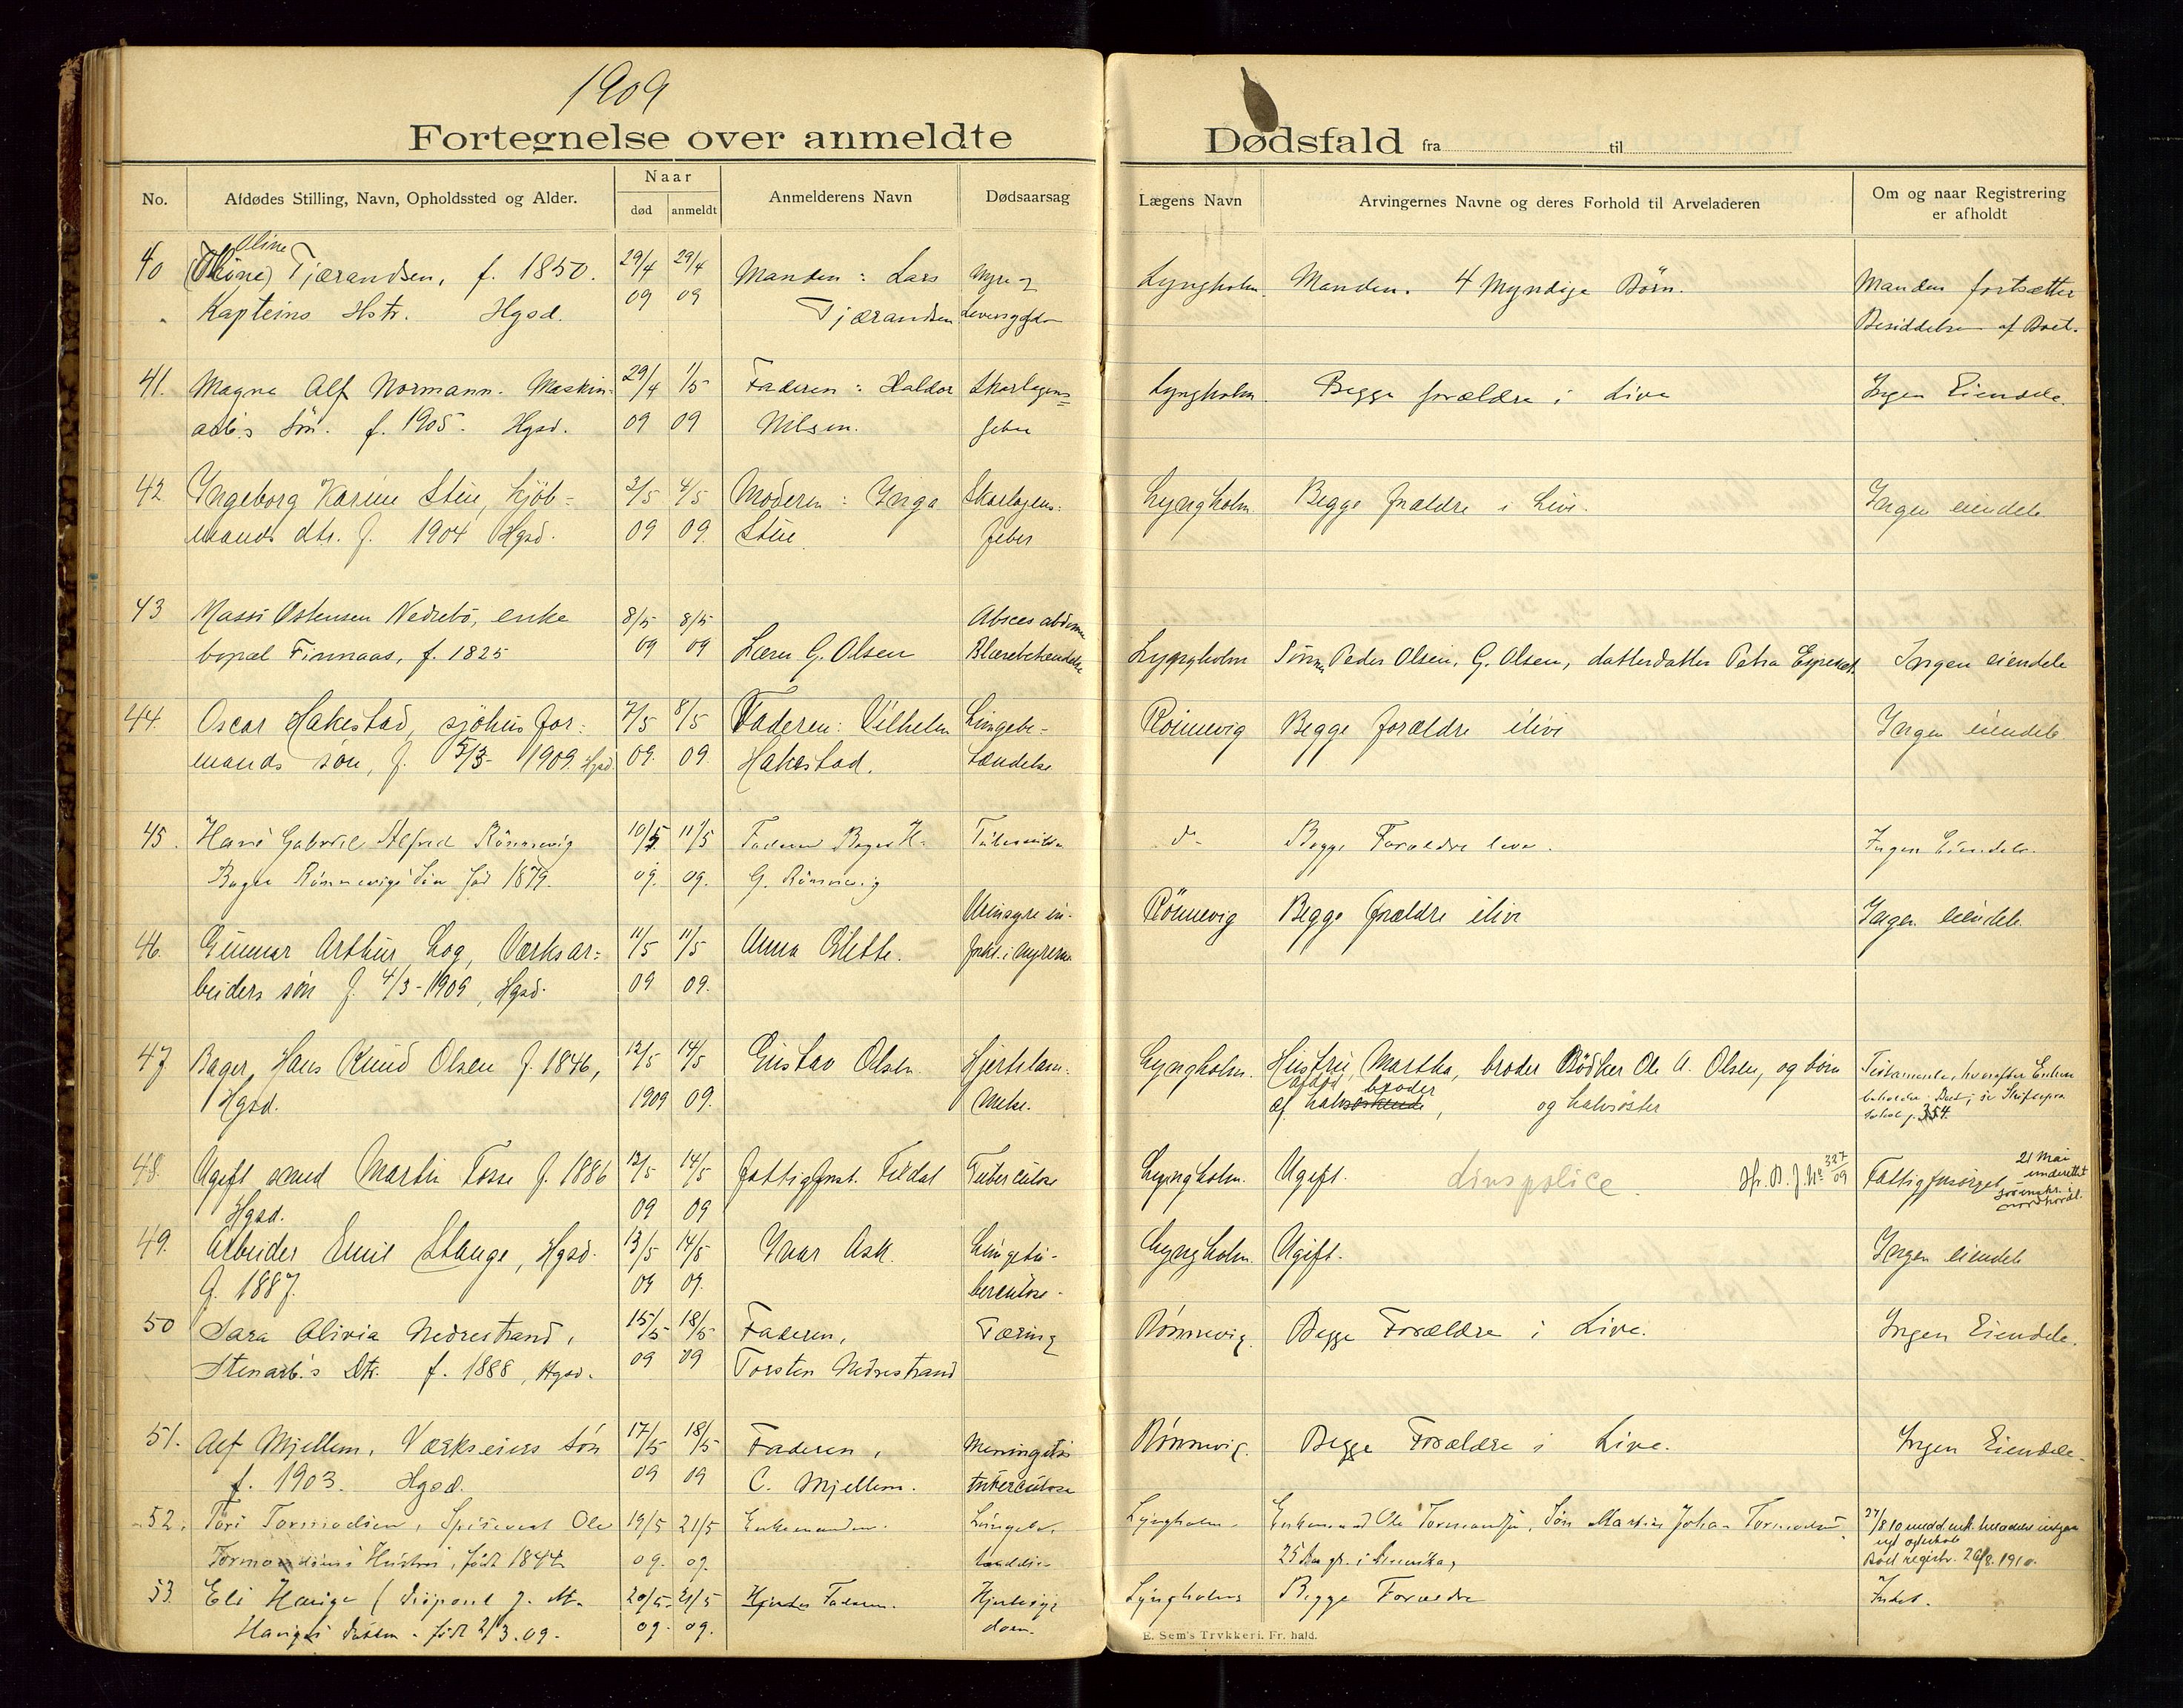 1909
Fortegnelse over anmeldte Dødsfald fra til
No. Afdødes Stilling, Navn, Opholdssted og Alder. Naar død anmeldt Anmelderens Navn Dødsaarsag Lægens Navn Arvingernes Navne og deres Forhold til Arveladeren Om og naar Registrering er afholdt
Oline
40 Tjærandsen, f. 1850. 29/4 29/4 Manden: Lars Nyre og Lyngholm. Manden. 4 Myndige Börn. Manden fortsætter
Kapteins Hstr. Hgsd. 09 09 Tjærandsen Leversygdo Besiddelsen af Boet.
41. Magna Alf Normann. Maskin- 29/4 1/5 Faderen: Haldor Skarlagens= Lyngholm. Begge forældre i Live Ingen Eiendele.
arb.s Sön. f. 1905. Hgsd. 09 09 Nilsen. feber
42 Ingeborg Karine Stue, kjöb- 2/5 4/5 Moderen: Inga Skarlagens- Lyngholm Begge forældre i Live. Ingen eiendele
mands dtr. f. 1904 Hgsd. 09 09. Stue feber
43 Massi Östensen Nedrebö, enke 8/5 8/5 Absces abdomen
bopæl Finnaas, f. 1825 09 09 Lærer G. Olsen Blærebetændelse Lyngholm Peder Olsen, G. Olsen, datterdatter Petra Ingen eiendele
44. Oscar Hakestad, sjöhusfor- 7/5 8/5 Faderen: Vilhelm Lungebe- Rönnevig Begge forældre ilive Ingen eiendele
mands sön, f. 5/3- 1909. Hgsd 09. 09. Hakestad. tændelse
45. Hans Gabriel Alfred Rönnevig 10/5 11/5 Faderen Bager H. do Begge Forældre lever. Ingen Eiendele.
Bager Rönnevigs Sön föd 1879. 09. 09. G. Rönnevig
Urinsyre in- Rönnevig Begge forældre ilive Ingen eiendele.
46. Gunnar Arthur Log, Værksar- 11/5 11/5 Anna fakt. i nyrerne
beiders sön f. 4/3-1909, Hgsd. 09 09.
47 Bager Hans Knud Olsen f. 1846, 12/5 14/5 Gustav Olsen Hjertelam- Lyngholm. Hustru, Martha, broder Bödker Ole A. Olsen, og börn Testamente, hvorefter Enken
afdöd broder
Hgsd. 1909 09. melse. af halvsöskende, og halvsöster beholder Boet, se Skifteprotokol p. 354.
48. Ugift mand Martin Fosse f. 1886 12/5 14/5 fattigforst. Tuberculose Lyngholm. Ugift. dinspolice. Jfr. B. J. No 327/09 Fattigforsörget 21 Mai underettet
Hgsd. 09 09
49. Arbeider Emil Stange, Hgsd. 13/5 14/5 Ivar Ask. Lungetu- Lyngholm. Ugift. Ingen eiendele
f. 1887. 09 09. berculose.
50 Sara Olivia Nedrestrand, 15/5 18/5 Faderen, Tæring Rönnevig. Begge Forældre i Live. Ingen Eiendele.
Stenarb.s Dtr. f. 1888, Hgsd. 09 09 Torsten Nedrestrand
51. Alf Mjellem, Værkseiers Sön 17/5 18/5 Faderen, Meningitis Rönnevig. Begge Forældre i Live. Ingen Eiendele.
f. 1903. Hgsd. 09 09 C. Mjellem. tuberculosa
52. Tormodsen, Ole 19/5 21/5 Enkemanden. Lungebe- Lyngholm Enkemand Ole Tormodsen, Sön Martin Johan Tormodsen, 27/8 10
Hustru, född 1844 09. 09. 25 Aar gl. i Amerika, Boet registr. 26/8 1910.
53. Eli Hauge 20/5 21/5 Faderen. Hjertesyg- Lyngholm Begge Forældre Intet.
Hauges datter. född 2/3.09. 09. 09. dom.
E. Sem's Trykkeri, Fr. hald.